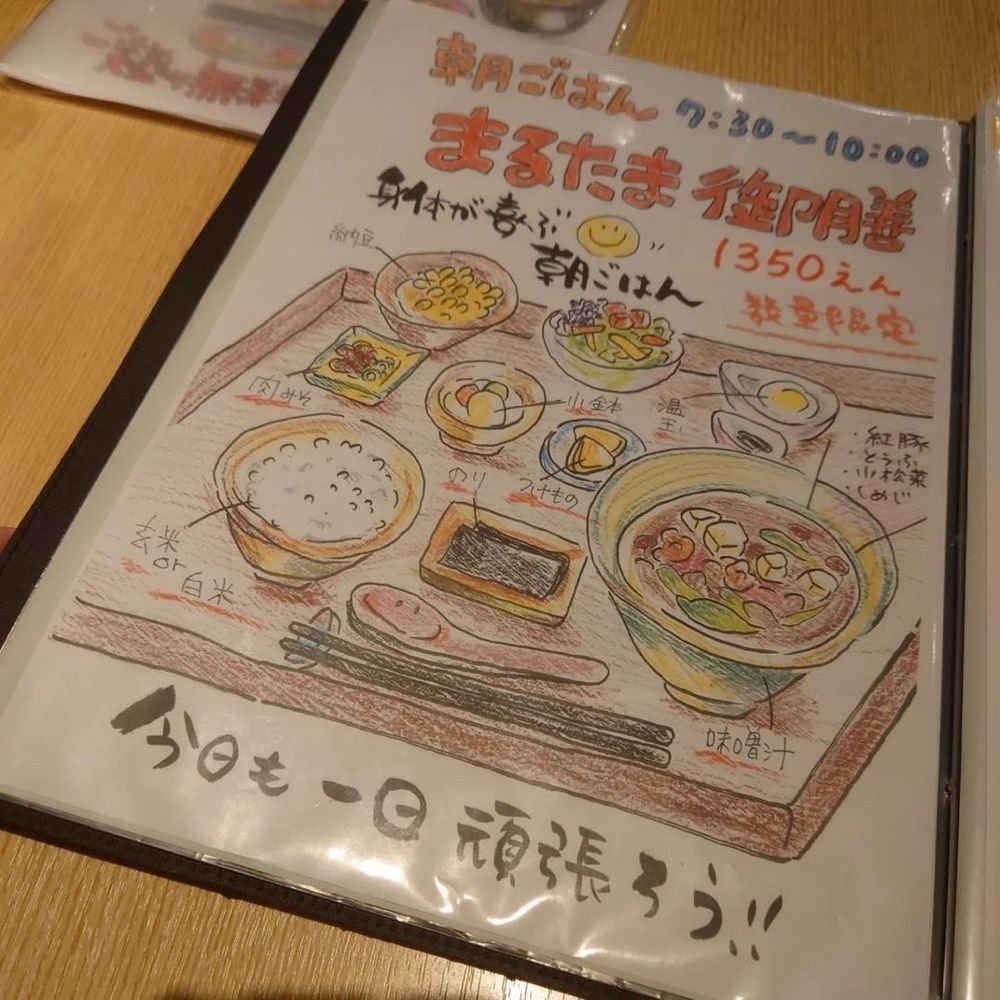 ご飯
無料
朝ごはん 7:30～10:00
まるたま御膳
身体が喜ぶ
朝ごはん
1350えん
数量限定
納豆
肉みそ
小鉢
温玉
・紅豚
・とうふ
・小松菜
・しめじ
のり
つけもの
玄米
or
白米
味噌汁
今日も一日頑張ろう!!